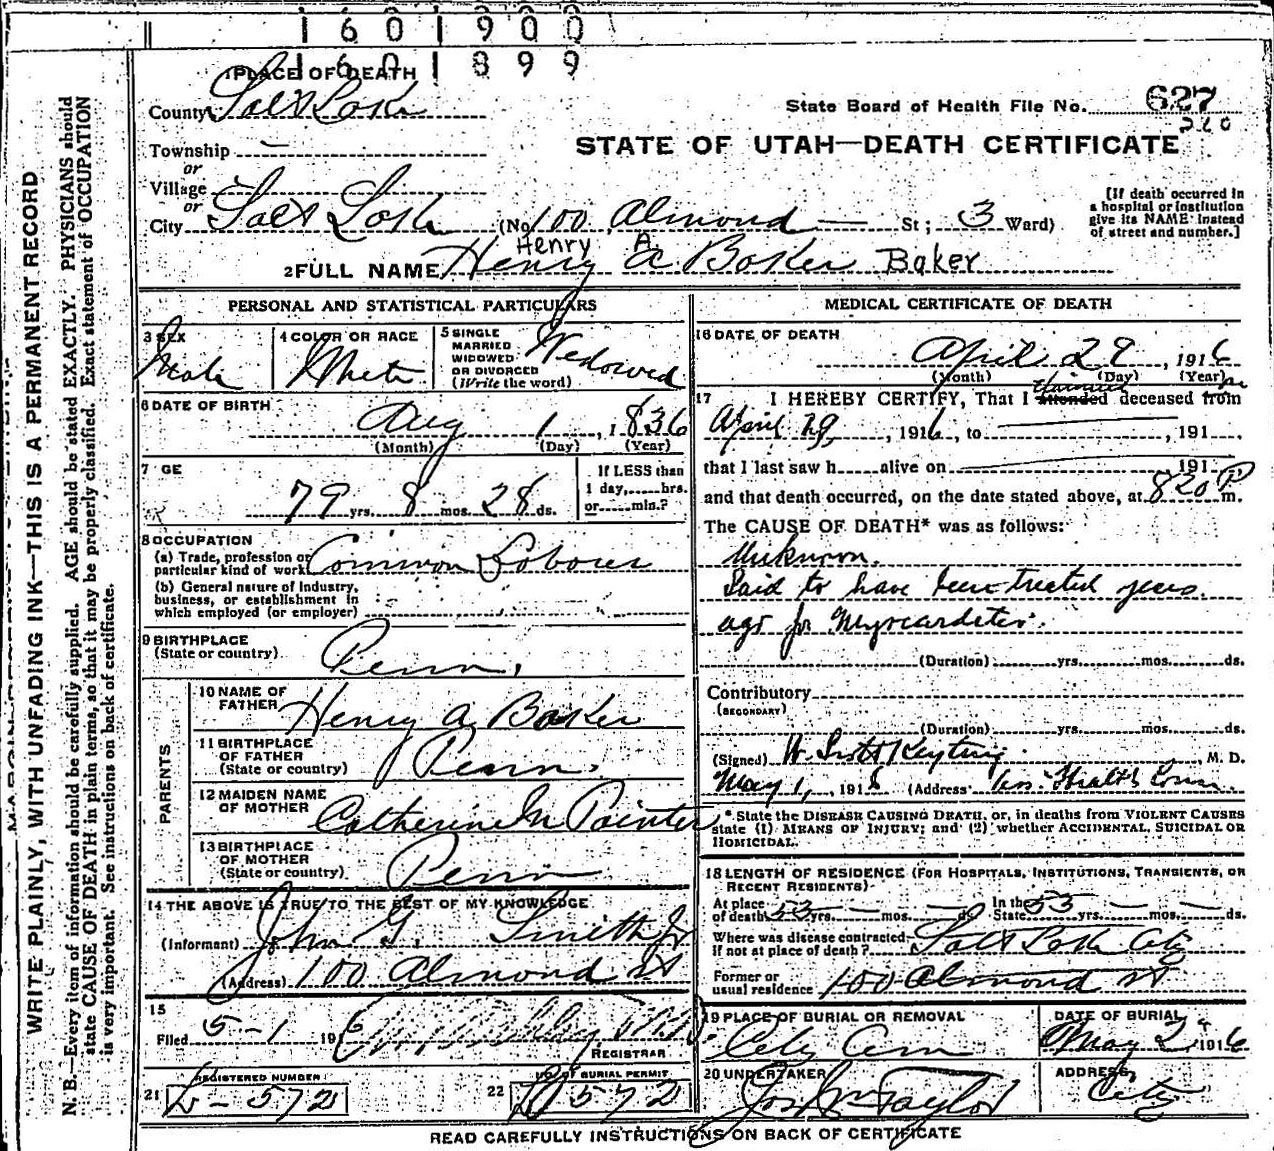 1601900
1601899
1 PLACE OF DEATH
County Salt Lake
State Board of Health File No. 627
260
STATE OF UTAH—DEATH CERTIFICATE
Township —
or
Village
or
City Salt Lake (No. 100 Almond — St; 3 Ward)
[If death occurred in a hospital or institution give its NAME instead of street and number.]
Henry A.
2 FULL NAME Henry A Baker Baker
PERSONAL AND STATISTICAL PARTICULARS
3 SEX
Male
4 COLOR OR RACE
White
5 SINGLE
MARRIED
WIDOWED
OR DIVORCED
(Write the word)
Widowed
6 DATE OF BIRTH
Aug 1, 1836
(Month) (Day) (Year)
7 GE
79 yrs. 8 mos. 28 ds.
If LESS than
1 day,.....hrs.
or.....min.?
8 OCCUPATION
(a) Trade, profession or
particular kind of work Common Laborer
(b) General nature of industry,
business, or establishment in
which employed (or employer)
9 BIRTHPLACE
(State or country) Penn.
PARENTS
10 NAME OF
FATHER Henry A Baker
11 BIRTHPLACE
OF FATHER
(State or country) Penn.
12 MAIDEN NAME
OF MOTHER Catherine M Painter
13 BIRTHPLACE
OF MOTHER
(State or country) Penn
14 THE ABOVE IS TRUE TO THE BEST OF MY KNOWLEDGE
(Informant) John G. Smith Jr
(Address) 100 Almond St
15
Filed 5-1 1916
REGISTRAR
21 REGISTERED NUMBER
L-572
22 NO. OF BURIAL PERMIT
572
MEDICAL CERTIFICATE OF DEATH
16 DATE OF DEATH
April 29, 1916
(Month) (Day) (Year)
17 I HEREBY CERTIFY, That I attended deceased from
April 29, 1916, to, 191
that I last saw h alive on 191
and that death occurred, on the date stated above, at 820 P m.
The CAUSE OF DEATH* was as follows:
Unknown.
Said to have been treated years
ago for Myocarditis.
(Duration) yrs. mos. ds.
Contributory
(SECONDARY)
(Duration) yrs. mos. ds.
(Signed) W. Scott Keyting, M. D.
May 1, 1916 (Address) Health Com.
* State the DISEASE CAUSING DEATH, or, in deaths from VIOLENT CAUSES
state (1) MEANS OF INJURY; and (2) whether ACCIDENTAL, SUICIDAL OR
HOMICIDAL.
18 LENGTH OF RESIDENCE (FOR HOSPITALS, INSTITUTIONS, TRANSIENTS, OR
RECENT RESIDENTS)
At place
of death 53 yrs. — mos. — ds. In the
State 53 yrs. — mos. — ds.
Where was disease contracted
if not at place of death? Salt Lake City
Former or
usual residence 100 Almond St
19 PLACE OF BURIAL OR REMOVAL
City Cem
DATE OF BURIAL
May 2, 1916
20 UNDERTAKER
Jos Wm Taylor
ADDRESS
City
READ CAREFULLY INSTRUCTIONS ON BACK OF CERTIFICATE
WRITE PLAINLY, WITH UNFADING INK—THIS IS A PERMANENT RECORD
N. B.—Every item of information should be carefully supplied. AGE should be stated EXACTLY. PHYSICIANS should
state CAUSE OF DEATH in plain terms, so that it may be properly classified. Exact statement of OCCUPATION
is very important. See instructions on back of certificate.